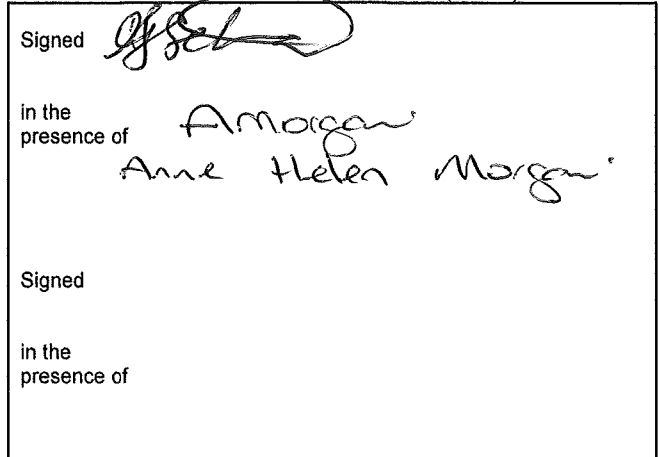 Signed
in the
presence of AMorgan
Anne Helen Morgan
Signed
in the
presence of